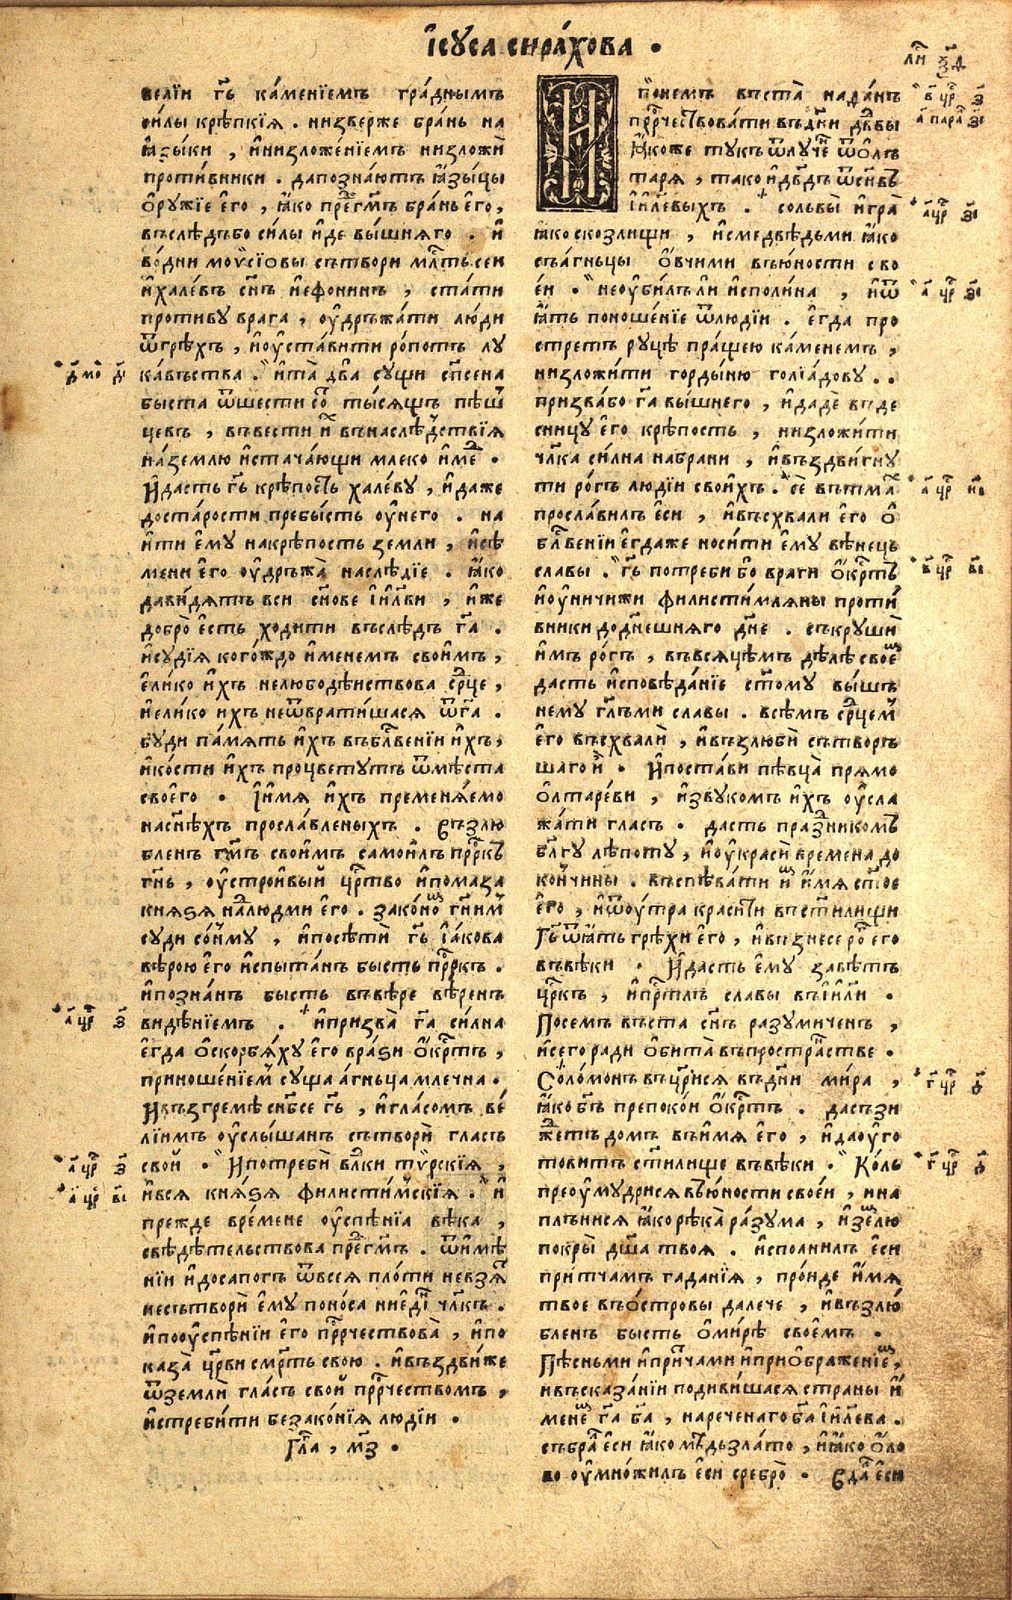 і҆сꙋса сира́хова .
ве́лїи гь ка́менїемъ гра́днымъ
си́лы крѣ́пкїѧ . низверже бра́нь на
ꙗ҆зы́ки , и҆низложе́нїемъ низложѝ
проти́вники . дапозна́ютъ ꙗ҆зы́цы
ѻ҆рꙋ́жїе е҆го̀ , ꙗ҆́ко пре́гмъ бра́нь е҆го̀ ,
въслѣ́дъбо си́лы и҆́де вы́шнѧго . и҆
во́дни моѵсїѡвы сътвори млⷭ҇ть сеи
и҆хале́въ сн҃ъ и҆ефо́нинъ , ста́ти
проти́вꙋ врага̀ , ᲂу҆дръжа́ти лю́ди
ѿгрѣ́хъ , и҆ᲂу҆ста́вити ро́потъ лꙋ
ка́въства . и҆та̀ два̀ сꙋщи сп҃сена
быста ѿшести со́ ты́сѧщъ пѣш
цевъ , въвести и҆́ вънаслѣ́дствїѧ
на́землю и҆стача́ющи млеко и҆ме́ .
И҆дасть гь крѣ́пость хале́вꙋ , и҆даже
доста́рости пребы́сть ᲂу҆него . на
и҆ти е҆мꙋ накрѣ́пость земли , и҆сѣ́
мени е҆го ᲂу҆дръжа̀ наслѣ́дїе . ꙗ҆́ко
дави́дѧтъ вси сн҃ове і҆и҃лви , и҆́же
добро̀ е҆сть ходити въслѣ́дъ га .
и҆сꙋдїѧ кого́ждо и҆менемъ свои҆мъ ,
е҆ли́ко и҆́хъ нелюбодѣиствова ср҃це ,
и҆ели́ко и҆хъ неѿврати́шасѧ ѿга .
бꙋди па́мѧть и҆́хъ въбл҃ве́нїи и҆́хъ ,
и҆ко́сти и҆́хъ процветꙋтъ ѿмѣ́ста
своего . І҆и҆мѧ и҆́хъ пременѧ́емо
насн҃ѣ́хъ просла́вленыхъ . Възлю
бленъ гмъ свои́мъ самои́лъ прⷪ҇ркъ
гнь , ᲂу҆стро́ивый црⷭ҇тво и҆пома́за
кнѧ́ѕѧ на́людми е҆го . зако́но гни́м
сꙋди со́нмꙋ , и҆посѣтѝ гь і҆а́кова
вѣ́рою е҆го и҆спыта́нъ бысть прⷪ҇ркъ .
и҆позна́нъ бысть въвѣ́ре вѣ́ренъ
видѣ́нїемъ . и҆призва̀ га си́лна
е҆гда ѻ҆скорбѧ́хꙋ е҆го вра́ѕи ѻ҆́крⷭ҇тъ ,
приноше́нїем сꙋща а́гньца мле́чна .
И҆възгремѣ̀ снб҃се гь , и҆гла́сомъ ве́
лїимъ ᲂу҆слы́шанъ сътворѝ гласъ
свой . И҆потребѝ влⷣки ту́рскїѧ ,
и҆всѧ кнѧ́ѕѧ филисти́мскїѧ . и҆
пре́жде вре́мене ᲂу҆спѣ́нїа вѣ́ка ,
свѣдѣ́тельствова пре́гмъ . ѿи҆мѣ́
нїи и҆досапогъ ѿвсеѧ пло́ти невзѧ́
несътворѝ е҆мꙋ поно́са ниеди́ чл҃къ .
и҆поᲂу҆спѣ́нїи е҆го прⷪ҇рчествова̀ , и҆по
каза̀ цр҃ви смрⷭ҇ть свою . и҆въздви́же
ѿземлѝ гла́съ свой прⷪ҇рчествомъ ,
и҆стреби́ти безако́нїѧ людїи .
Гла̀ , мз .
ли чд
по́немъ въста̀ нада́нъ
прⷪ҇рчествова́ти въдни дв҃вы
Ꙗ҆́коже тꙋкъ ѿлꙋче́ ѿо҆л
тарѧ , тако и҆дв҃дъ ѿсн҃въ
і҆и҃левыхъ . сольвы̀ и҆гра̀
ꙗ҆́ко скозлищи , и҆смедвѣ́дьми ꙗ҆́ко
съа́гньцы ѻ҆́вчими въю́ности сво
е́и . неᲂу҆би́лъли и҆споли́на , и҆ѿ
ꙗ҆́тъ поноше́нїе ѿлюдїи . е҆гда про
стретъ рꙋцѣ̀ пра́щею ка́менемъ ,
низложи́ти горды́ню голїа́довꙋ . .
призва́бо га вы́шнего , и҆дадѐ въде
сницꙋ е҆го крѣ́пость , низложи́ти
чл҃ка си́лна набра́ни , и҆въздви́гнꙋ
ти ро́гъ людїи свои҆́хъ . сѐ вътма́
просла́вилъ е҆си , и҆въсхвали е҆го ѻ҆
бл҃ве́нїи е҆гдаже носи́ти е҆мꙋ вѣ́нецъ
славы . гь потреби́ бо враги ѻ҆́крⷭ҇тъ
и҆ᲂу҆ничижи филистимлѧ́ны проти́
вники доднешнѧго дн҃е . съкрꙋшѝ
и҆мъ ро́гъ , въвсѧцѣмъ дѣ́лѣ свое́
дасть и҆сповѣ́данїе ст҃омꙋ вы́шъ
немꙋ гл҃ъми славы . всѣ́мъ ср҃цем
е҆го въсхвалѝ , и҆възлюбѝ сътворъ
шаго и҆́ . И҆поста́ви пѣвца̀ прѧмо
ѻ҆лтаре́ви , и҆звꙋкомъ и҆́хъ ᲂу҆сла
жа́ти гласъ . дасть пра́зникомъ
бл҃гꙋ лѣ́потꙋ , и҆ᲂу҆красѝ времена до
кончи́ны . въспѣва́ти и҆ и҆мѧ ст҃ое
е҆го , и҆ѿᲂу҆тра краси́ти въст҃и́лищи
Гь ѿꙗ҆́тъ грѣхи е҆го , и҆възнесе ро́ его
въвѣ́ки . И҆дасть е҆мꙋ завѣ́тъ
црⷭ҇къ , и҆прⷭ҇тлъ славы въі҆и҃ли .
Посемъ въста сн҃ъ разꙋмиченъ ,
и҆сего ради ѻ҆бита̀ въпростра́нстве .
Соло́монъ въцр҃исѧ въдни ми́ра ,
ꙗ҆́ко бъ препоко́и ѻ҆́крⷭ҇тъ . дасъзи
жетъ домъ въи҆мѧ е҆го , и҆даᲂу҆го
товитъ ст҃и́лище въвѣ́ки . Ко́ль
преᲂу҆мꙋдрисѧ въю́ности своеи , и на
плънисѧ ꙗ҆́ко рѣ́ка ра́зꙋма , и҆зе́лю
покры̀ дш҃а твоѧ . и҆сполнилъ е҆си
при́тчамъ гада́нїѧ , про́иде и҆мѧ
твое въѻ҆́стровы далече , и҆възлю́
бленъ бысть ѻ҆ми́рѣ своемъ .
Пѣсньми и҆при́чами и҆приѻ҆браже́нїе ,
и҆въсказа́нїи подиви́шасѧ страны и҆́
мене́ га ба , нареченаго ба і҆и҃лева .
събра́ е҆си ꙗ҆́ко мѣ́дь зла́то , и҆ꙗ҆́ко ѻ҆́ло
во ᲂу҆мно́жилъ е҆си сребро̀ . Вда́ е҆си